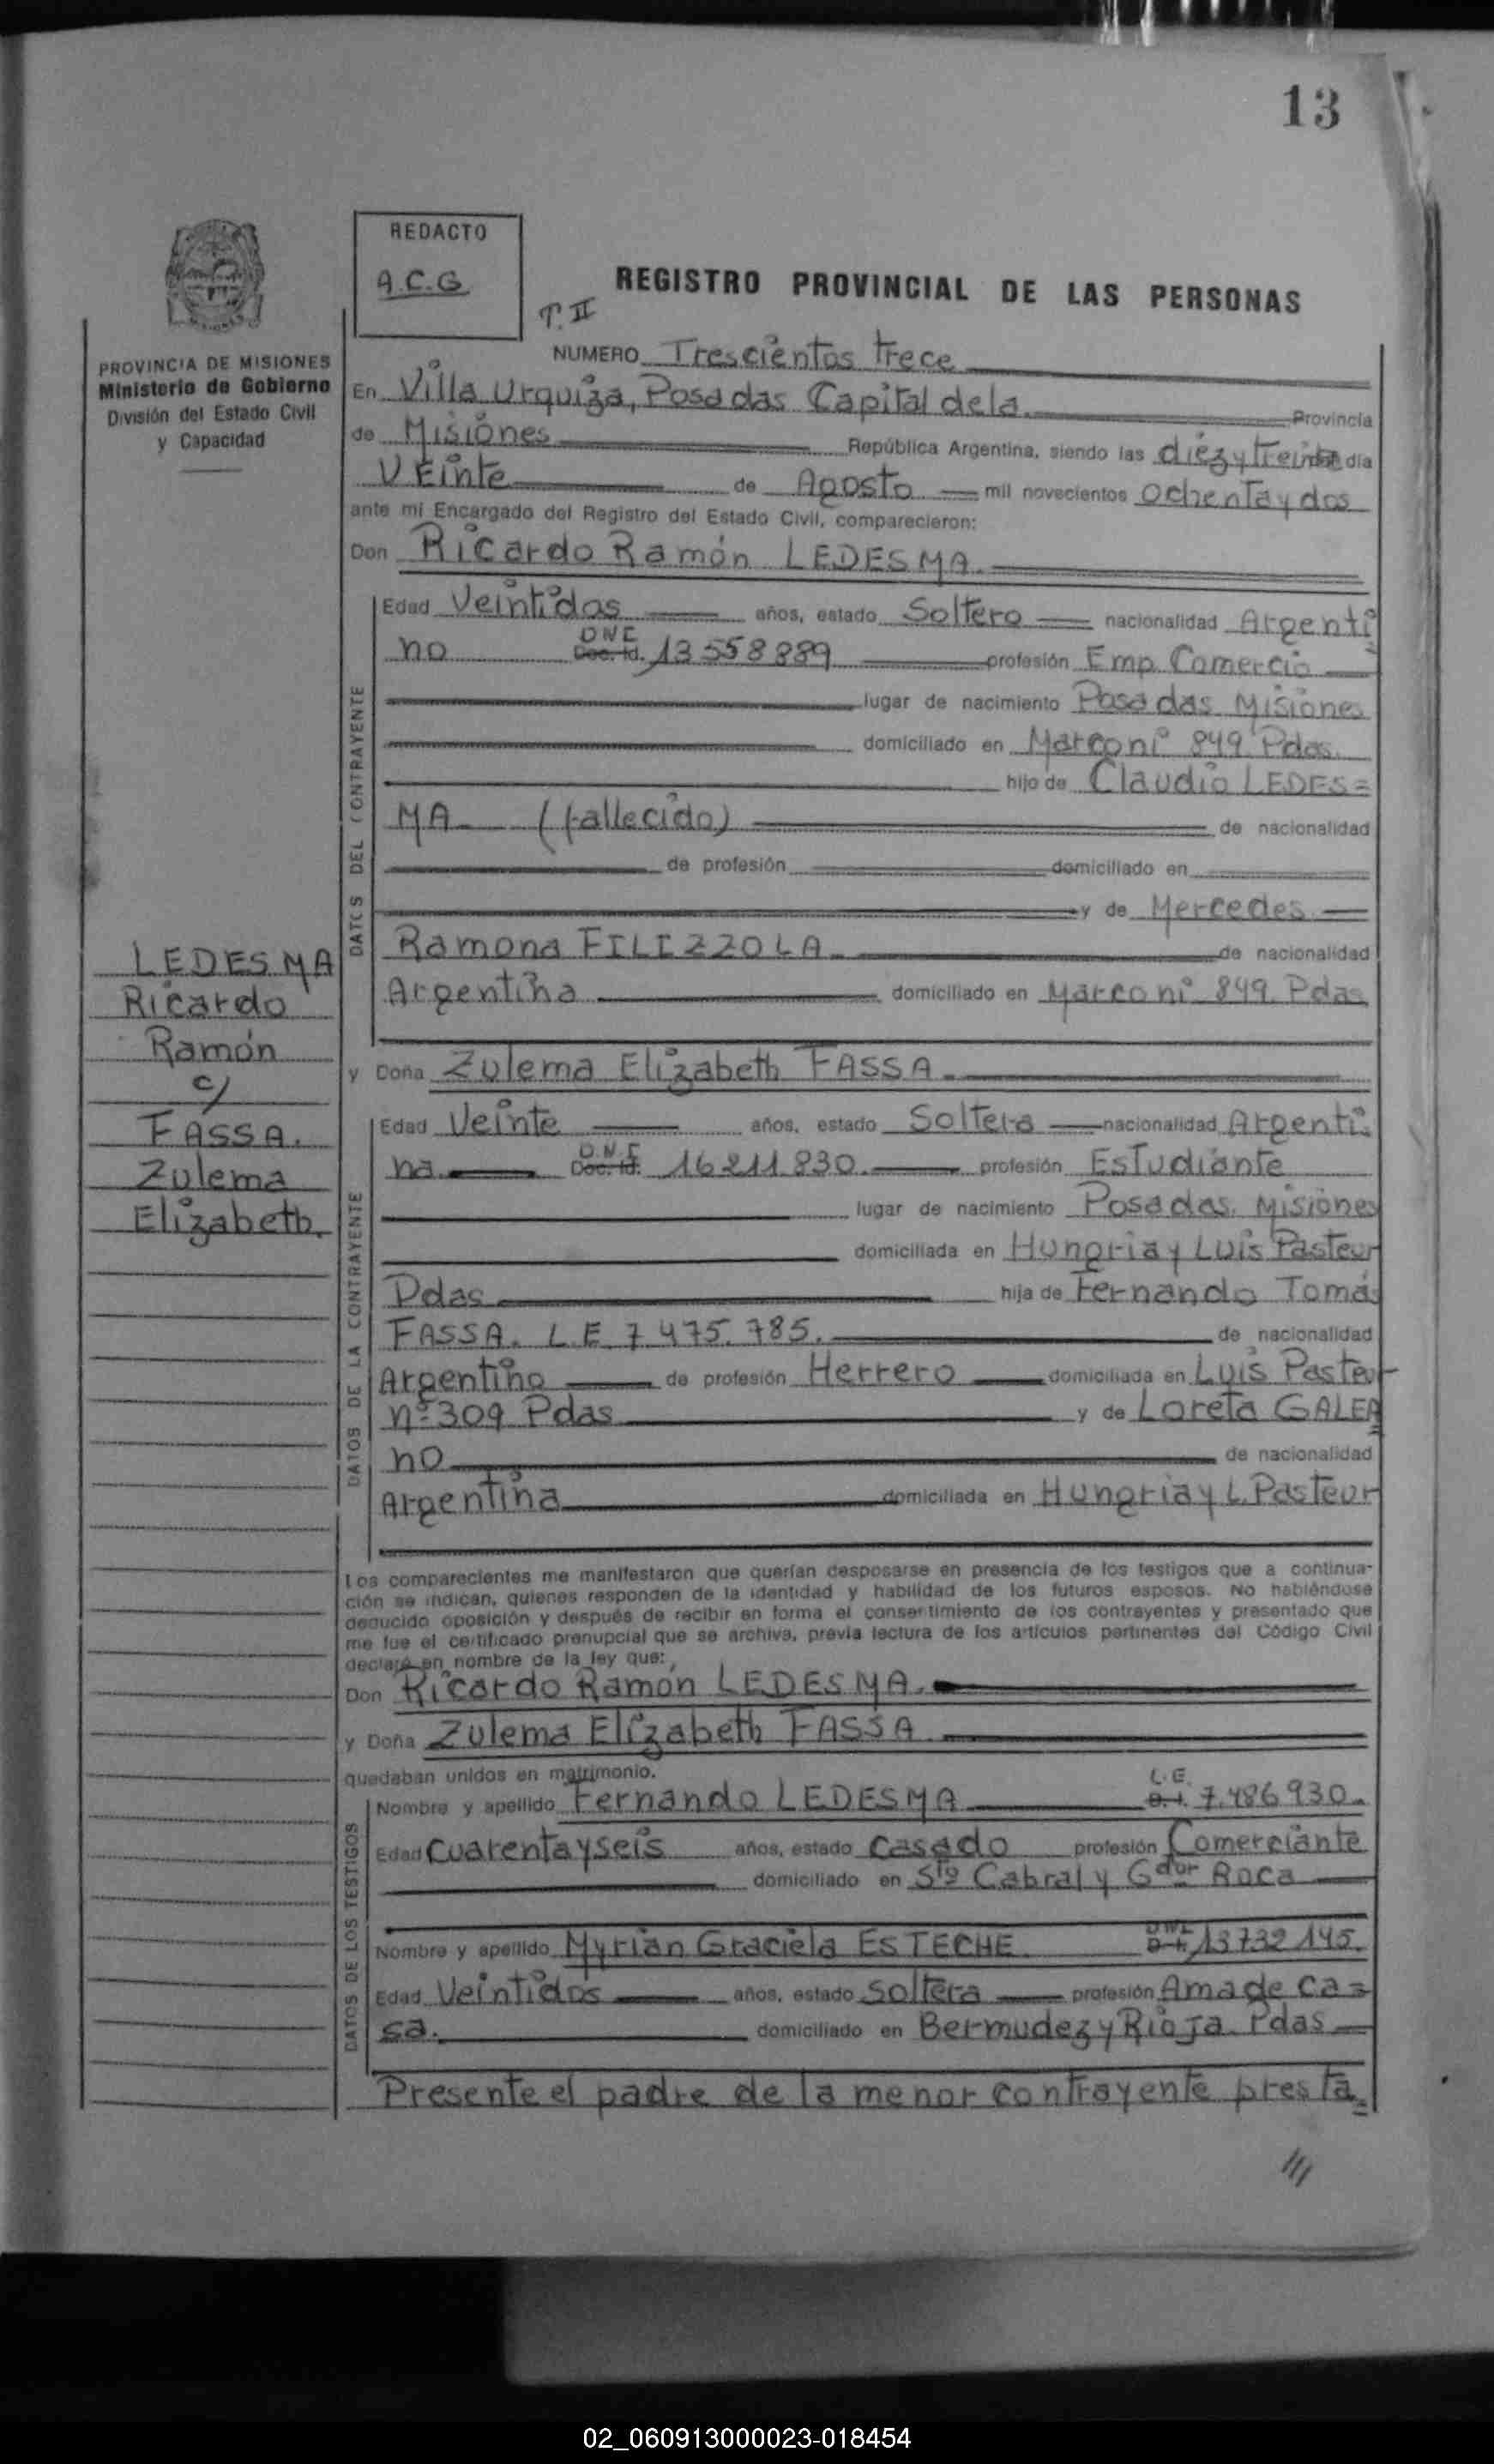 13
REDACTO
A.C.G
T. II
REGISTRO PROVINCIAL DE LAS PERSONAS
PROVINCIA DE MISIONES
Ministerio de Gobierno
División del Estado Civil
y Capacidad
NUMERO Trescientos trece
En Villa Urquiza, Posadas Capital de la Provincia
de Misiones República Argentina, siendo las diez y treinta día
VEinte de Agosto mil novecientos ochenta y dos
ante mi Encargado del Registro del Estado Civil, comparecieron:
Don Ricardo Ramón LEDESMA.
DATOS DEL CONTRAYENTE
Edad Veintidos años, estado Soltero nacionalidad Argenti
no DNI Doc. Id. 13558889 profesión Emp. Comercio
lugar de nacimiento Posadas Misiones
domiciliado en Marconi 849 Pdas.
hijo de Claudio LEDES=
MA (fallecido) de nacionalidad
de profesión domiciliado en
y de Mercedes
Ramona FILIZZOLA de nacionalidad
Argentina domiciliado en Marconi 849 Pdas
LEDESMA
Ricardo
Ramón
c/
FASSA.
Zulema
Elizabeth.
y Doña Zulema Elizabeth FASSA.
DATOS DE LA CONTRAYENTE
Edad Veinte años, estado Soltera nacionalidad Argenti
na D.N.I. Doc. Id. 16211.830. profesión Estudiante
lugar de nacimiento Posadas. Misiones
domiciliada en Hungria y Luis Pasteur
Pdas hija de Fernando Tomás
FASSA. L.E 7 475.785. de nacionalidad
Argentino de profesión Herrero domiciliada en Luis Pasteur
nº 309 Pdas y de Loreta GALEA
no de nacionalidad
Argentina domiciliada en Hungria y L. Pasteur
Los comparecientes me manifestaron que querían desposarse en presencia de los testigos que a continua-
ción se indican, quienes responden de la identidad y habilidad de los futuros esposos. No habiéndose
deducido oposición y después de recibir en forma el consertimiento de los contrayentes y presentado que
me fue el certificado prenupcial que se archiva, previa lectura de los artículos pertinentes del Código Civil
declaré en nombre de la ley que:
Don Ricardo Ramón LEDESMA.
y Doña Zulema Elizabeth FASSA
quedaban unidos en matrimonio.
DATOS DE LOS TESTIGOS
Nombre y apellido Fernando LEDESMA L.E. D.I. 7.486930.
Edad Cuarenta y seis años, estado Casado profesión Comerciante
domiciliado en Sto Cabral y Gdor Roca
Nombre y apellido Myrian Graciela ESTECHE DNI D.I. 13732 145.
Edad Veintidos años, estado soltera profesión Ama de Ca=
sa. domiciliado en Bermudez y Rioja. Pdas
Presente el padre de la menor contrayente presta=
///
02_060913000023-018454